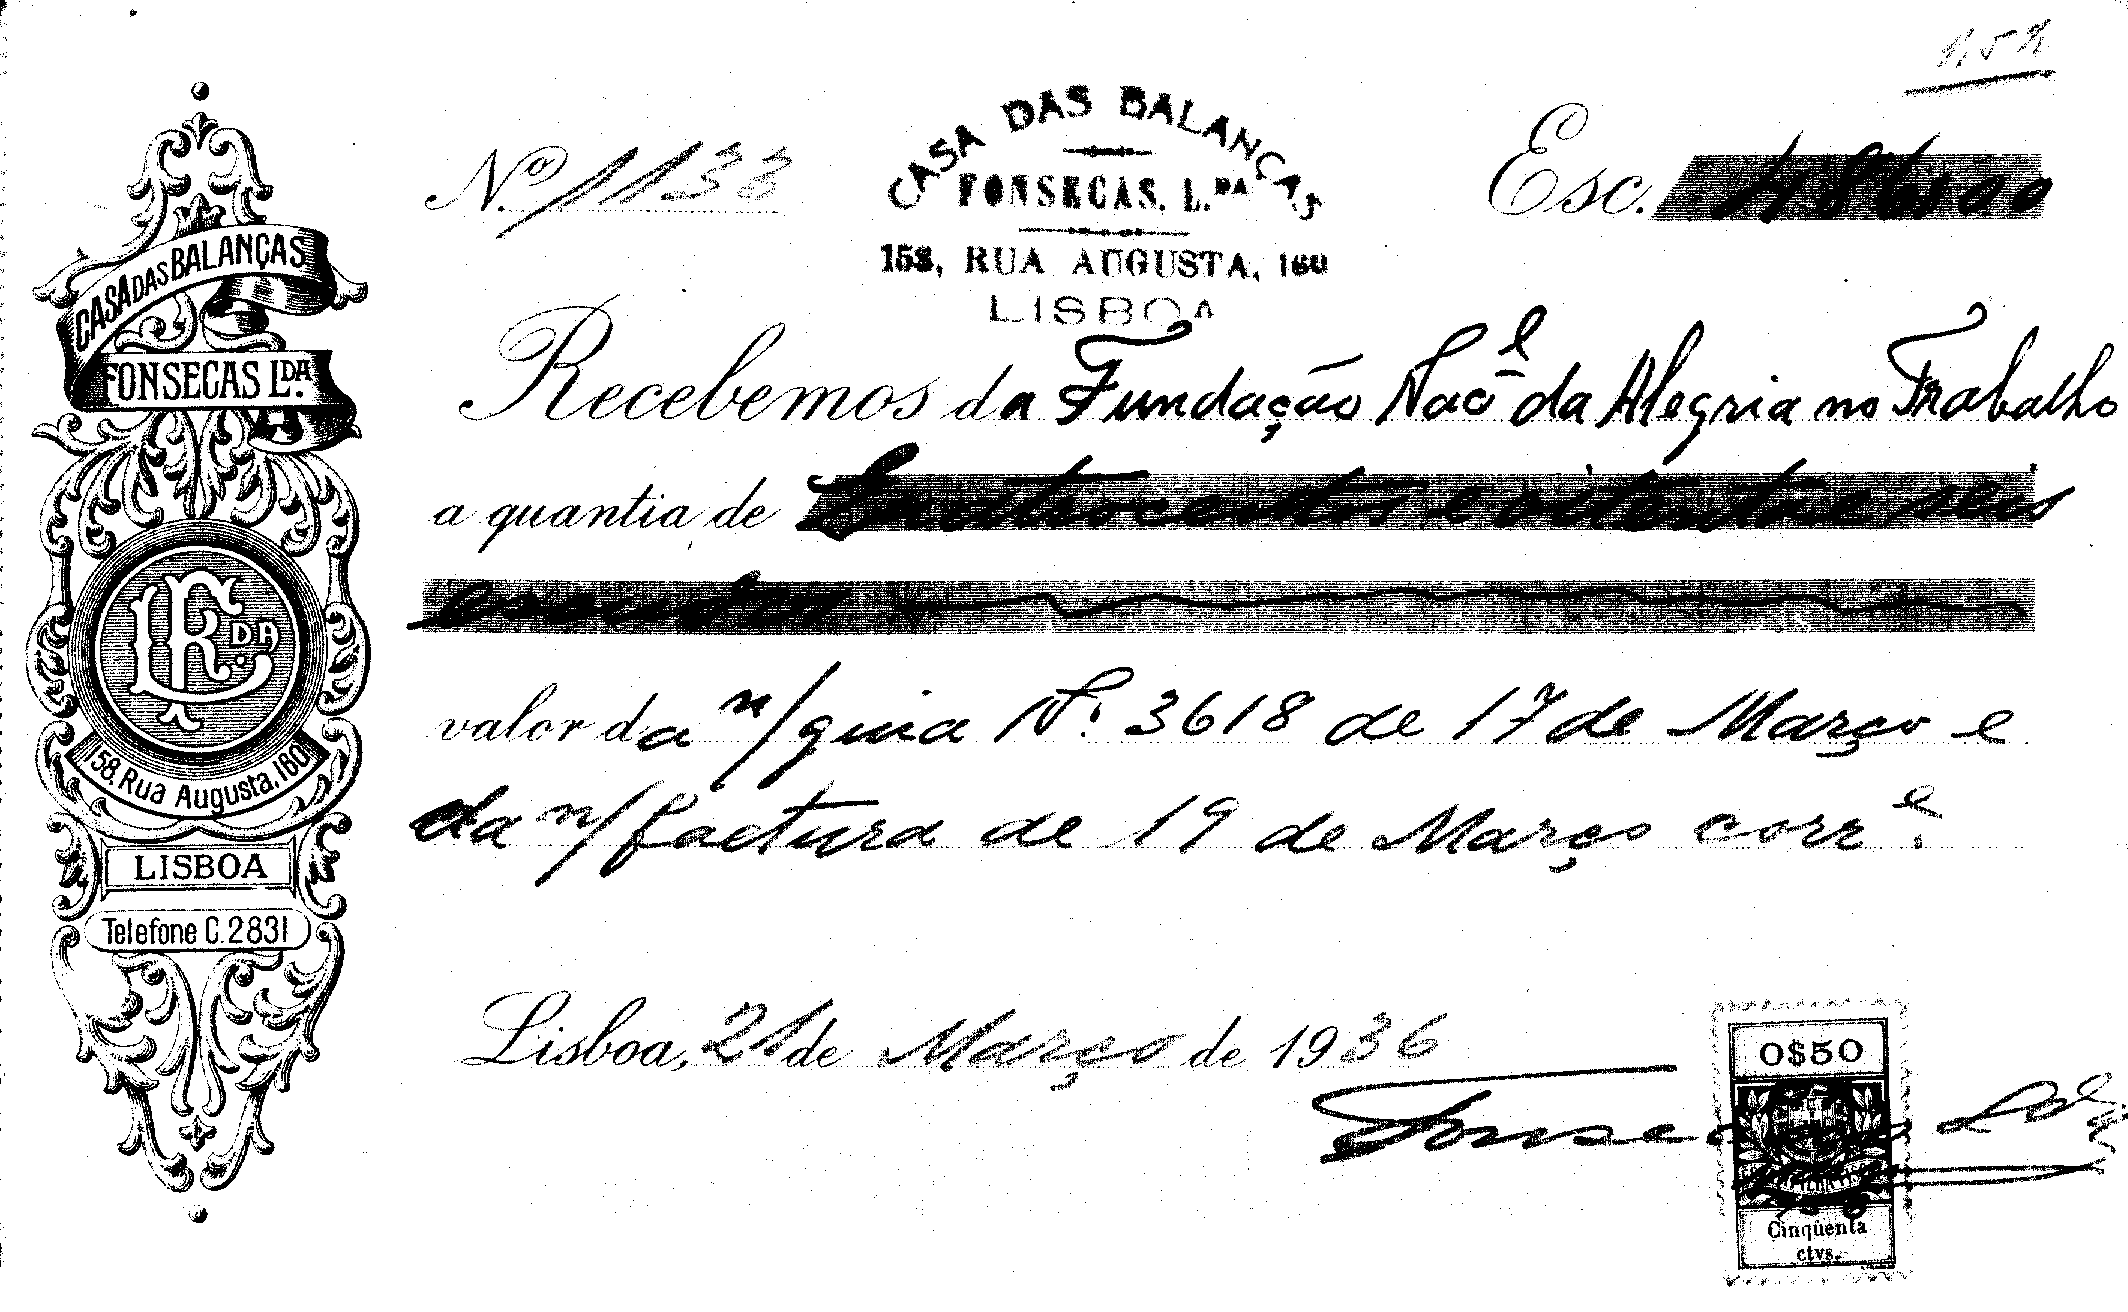 CASA DAS BALANÇAS
FONSECAS LDA.
LF DA
158, Rua Augusta, 160
LISBOA
Telefone C. 2831
Nº 1133
CASA DAS BALANÇAS
FONSECAS, L.DA
158, RUA AUGUSTA, 160
LISBOA
Esc. 486$00
Recebemos da Fundação Nacel da Alegria no Trabalho
a quantia de Quatrocentos e oitenta e seis
escudos
valor da n/ guia Nº. 3618 de 17 de Março e
da n/ factura de 19 de Março corre.
Lisboa, 21 de Março de 1936
Fonsecas Lda
0$50
Cinqüenta
ctvs.